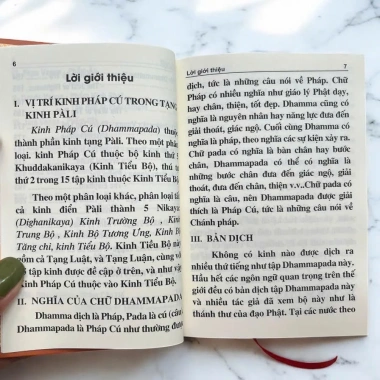 6
Lời giới thiệu
I. VỊ TRÍ KINH PHÁP CÚ TRONG TẠNG
KINH PÀLI
Kinh Pháp Cú (Dhammapada) thuộc
thành phần kinh tạng Pàli. Theo một phân
loại, kinh Pháp Cú thuộc bộ kinh thứ
Khuddakanikaya (Kinh Tiểu Bộ), thứ
thứ 2 trong 15 tập kinh thuộc Kinh Tiểu Bộ.
Theo một phân loại khác, phân loại
cả kinh điển Pàli thành 5 Nikaya
(Dighanikaya) Kinh Trường Bộ, Kinh
Trung Bộ, Kinh Bộ Tương Ưng, Kinh Bộ
Tăng chi, kinh Tiểu Bộ. Kinh Tiểu Bộ này
gồm cả Tạng Luật, và Tạng Luận, cùng với
tập kinh được đề cập ở trên, và như vậy
kinh Pháp Cú thuộc vào Kinh Tiểu Bộ.
II. NGHĨA CỦA CHỮ DHAMMAPADA
Dhamma dịch là Pháp, Pada là cú (câu)
Dhammapada là Pháp Cú như thường được
Lời giới thiệu 7
dịch, tức là những câu nói về Pháp. Chữ
Pháp có nhiều nghĩa như giáo lý Phật dạy,
hay chân, thiện, tốt đẹp. Dhamma cũng có
nghĩa là nguyên nhân hay năng lực đưa đến
giải thoát, giác ngộ. Cuối cùng Dhamma có
nghĩa là pháp, theo nghĩa các sự kiện xảy ra.
Chữ pada có nghĩa là bàn chân hay bước
chân, Dhammapada có thể có nghĩa là
những bước chân đưa đến giác ngộ, giải
thoát, đưa đến chân, thiện v.v..Chữ pada có
nghĩa là câu, nên Dhammapada được giải
thích là Pháp Cú, tức là những câu nói về
Chánh pháp.
III. BẢN DỊCH
Không có kinh nào được dịch ra
nhiều thứ tiếng như tập Dhammapada này.
Hầu hết các ngôn ngữ quan trọng trên thế
giới đều có bản dịch tập Dhammapada này
và nhiều tác giả đã xem bộ này như là
thánh thư của đạo Phật. Tại các nước theo